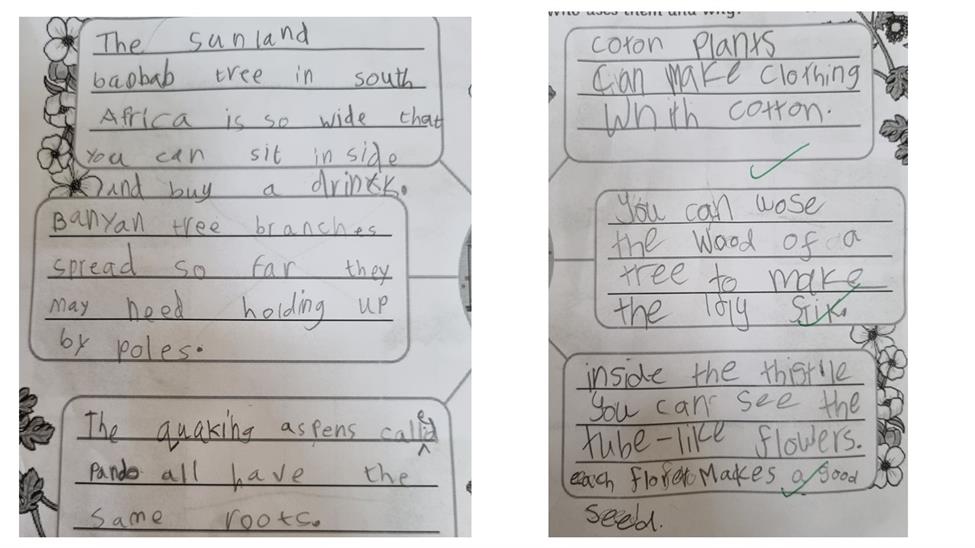 The sunland
baobab tree in south
Africa is so wide that
you can sit in side
and buy a drink.
Banyan tree branches
spread so far they
may need holding up
by poles.
The quaking aspens called
Pando all have the
same roots.
who uses them and why?
coton plants
Can make clothing
Whith cotton.
You can wose
the wood of a
tree to make
the loly stik.
inside the thistle
You can see the
tube-like flowers.
each floret Makes a good
seed.